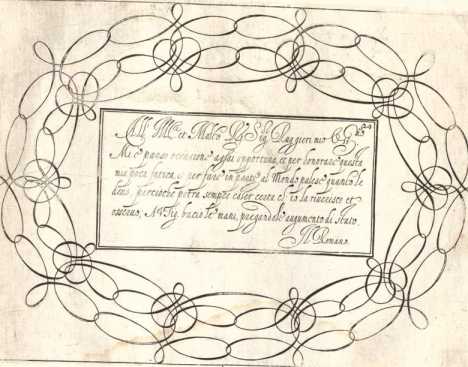 All Mto et Molto Rdo Sigr Ruggieri mio
Mi è parso occasione assai opportuna, et per honorare questa
mia poca fatica, e per fare in parte al Mondo palese quanto le
devo, perciochè potrà sempre esser certa ch' io la riverisco et
osservo, A V. Sig. bacio le mani, pregandole augumento di stato.
Il Romano.